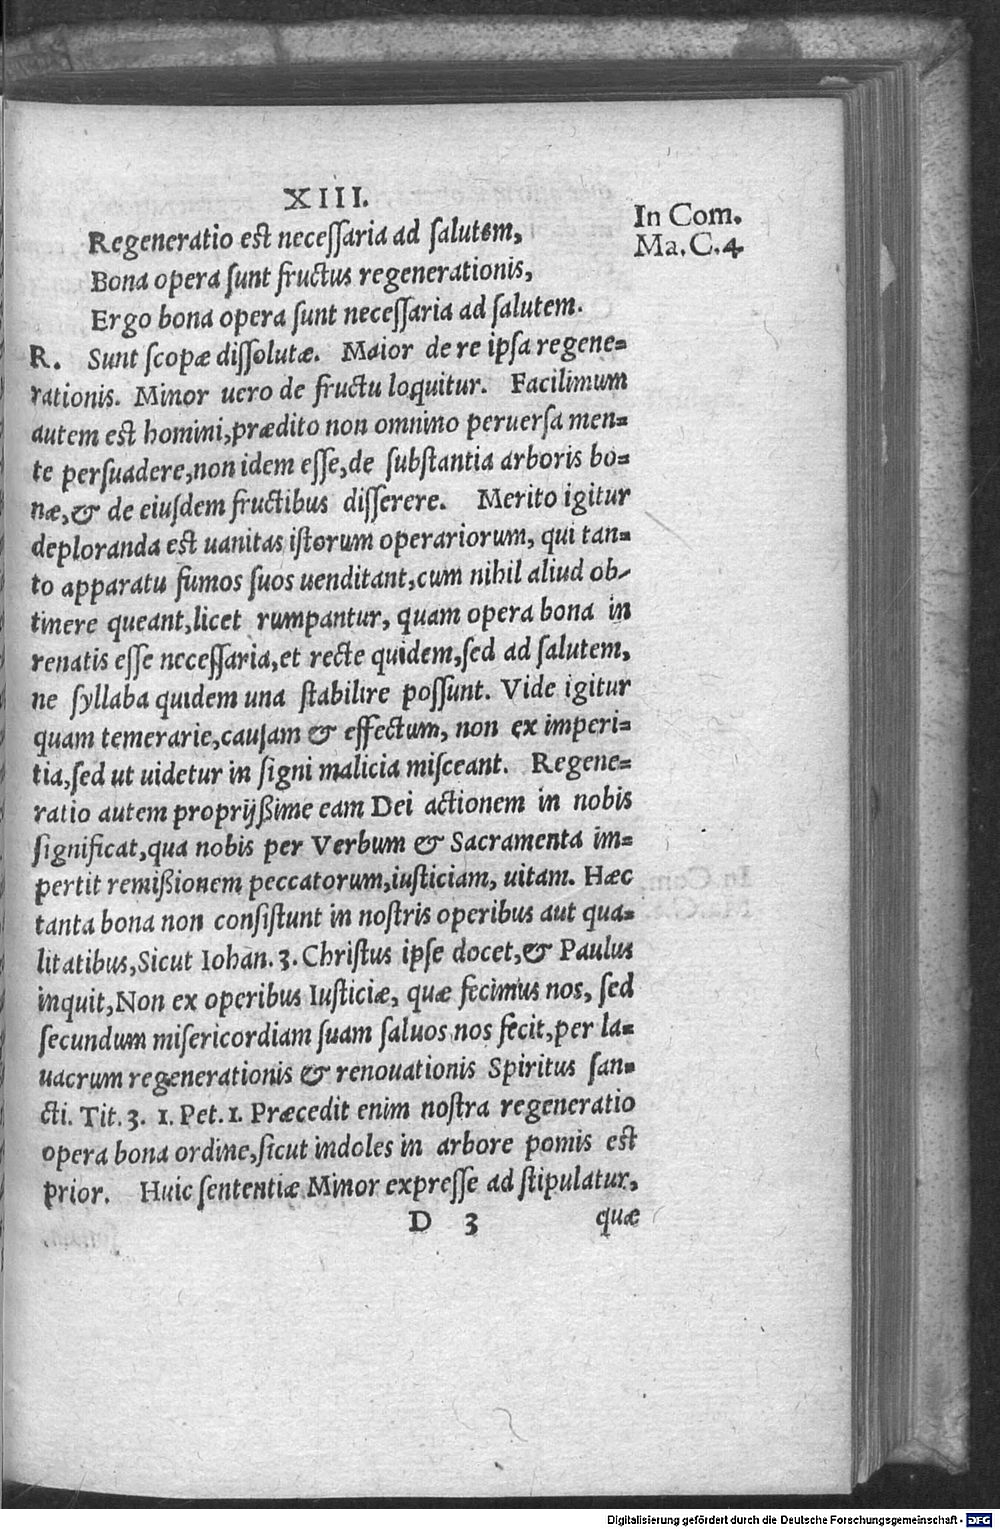 XIII.
In Com.
Ma. C. 4
Regeneratio est necessaria ad salutem,
Bona opera sunt fructus regenerationis,
Ergo bona opera sunt necessaria ad salutem.
R. Sunt scopæ dissolutæ. Maior de re ipsa regene=
rationis. Minor uero de fructu loquitur. Facilimum
autem est homini, prædito non omnino peruersa men=
te persuadere, non idem esse, de substantia arboris bo=
næ, & de eiusdem fructibus disserere. Merito igitur
deploranda est uanitas istorum operariorum, qui tan=
to apparatu fumos suos uenditant, cum nihil aliud ob-
tinere queant, licet rumpantur, quam opera bona in
renatis esse necessaria, et recte quidem, sed ad salutem,
ne syllaba quidem una stabilire possunt. Vide igitur
quam temerarie, causam & effectum, non ex imperi=
tia, sed ut uidetur in signi malicia misceant. Regene=
ratio autem proprijßime eam Dei actionem in nobis
significat, qua nobis per Verbum & Sacramenta im=
pertit remißionem peccatorum, iusticiam, uitam. Hæc
tanta bona non consistunt in nostris operibus aut qua=
litatibus, Sicut Iohan. 3. Christus ipse docet, & Paulus
inquit, Non ex operibus Iusticiæ, quæ fecimus nos, sed
secundum misericordiam suam saluos nos fecit, per la=
uacrum regenerationis & renouationis Spiritus san=
cti. Tit. 3. 1. Pet. 1. Præcedit enim nostra regeneratio
opera bona ordine, sicut indoles in arbore pomis est
prior. Huic sententiæ Minor expresse ad stipulatur,
D 3 quæ
Digitalisierung gefördert durch die Deutsche Forschungsgemeinschaft - DFG